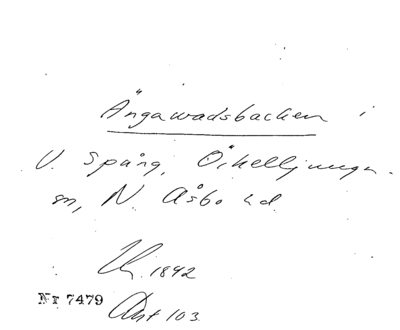 Ängawadsbacken i
V. Spång, Örkelljunga
sn, N. Åsbo hd.
Ur. 1892
Nr 7479
Ant 103